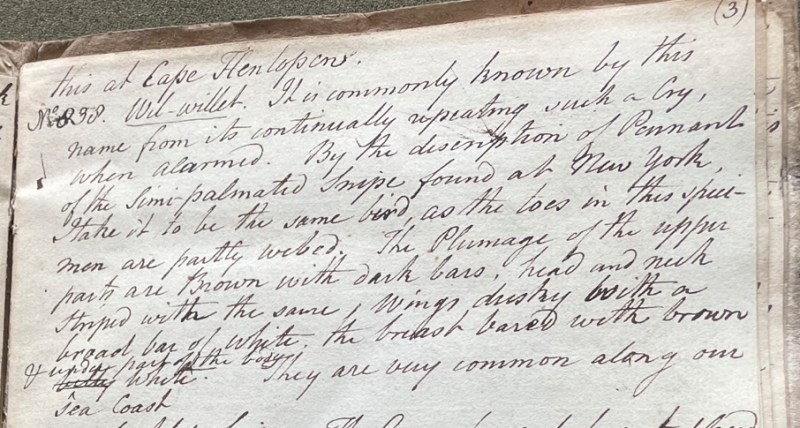 (3)
this at Cape Henlopen.
No. 838. Wil-willet. It is commonly known by this
name from its continually repeating such a Cry,
when alarmed. By the description of Pennant
of the Simi-palmated Snipe found at New York,
I take it to be the same bird, as the toes in this speci-
men are partly webed. The Plumage of the upper
parts are Brown with dark bars, head and neck
striped with the same, Wings duskey with a
broad bar of white. the breast bared with brown
& under part of the body
white. They are very common along our
Sea Coast